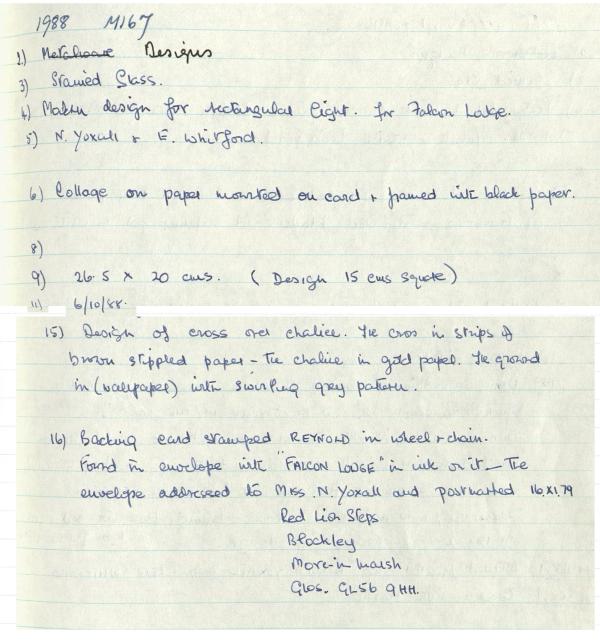 1988 M167
2) Metalware Designs
3) Stained Glass.
4) Maker design for rectangular light. for Falcon Lodge.
5) N. Yoxall + E. Whitford.
6) Collage on paper mounted on card + framed with black paper.
8)
9) 26.5 x 20 cms. ( Design 15 cms square)
11) 6/10/88.
15) Design of cross over chalice. The cross in strips of
brown stippled paper - The chalice in gold paper. The ground
in (wallpaper) with swirling grey pattern.
16) Backing card stamped REYNOLD in wheel + chain.
Found in envelope with "FALCON LODGE" in ink on it - The
envelope addressed to Miss. N. Yoxall and postmarked 16.XI.79
Red Lion Steps
Blockley
More-in marsh.
Glos. GL56 9HH.